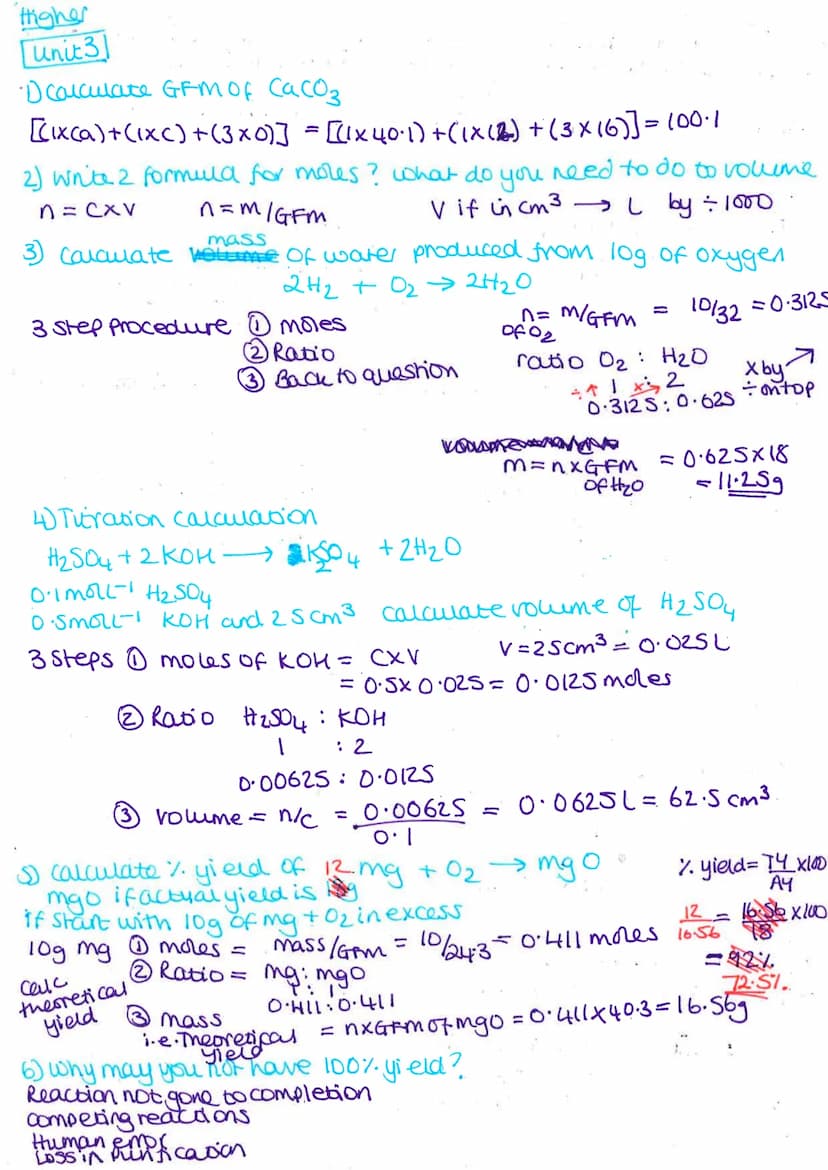 Higher
Unit 3
1) Calculate GFM of CaCO3
[(1xCa)+(1xC)+(3x0)] = [(1x40.1)+(1x12)+(3x16)]=100.1
2) Write 2 formula for moles? What do you need to do to volume
n=CxV n=m/GFM V if in cm³ → L by ÷1000
3) Calculate mass of water produced from 10g of oxygen
2H2 + O2 → 2H2O
3 step procedure ① moles
② Ratio
③ Back to question
n= m/GFM = 10/32 = 0.3125
of O2
ratio O2 : H2O
÷↑ 1 x: 2
0.3125 : 0.625
x by ↗
÷ on top
m=nxGFM = 0.625x18
of H2O = 11.25g
4) Titration calculation
H2SO4 + 2KOH → K2SO4 + 2H2O
0.1moll⁻¹ H2SO4
0.5moll⁻¹ KOH and 25cm³ calculate volume of H2SO4
3 steps ① moles of KOH = CxV V=25cm³=0.025L
= 0.5x0.025= 0.0125 moles
② Ratio H2SO4 : KOH
1 : 2
0.00625 : 0.0125
③ volume = n/c = 0.00625/0.1 = 0.0625L = 62.5cm³
5) Calculate % yield of mg + O2 → mgO
mgO if actual yield is 12
if start with 10g of mg + O2 in excess
% yield= TY/AY x100
12/16.56 = 16.56/18 x100
= 92%
72.5%.
10g mg ① moles = mass/GFM = 10/24.3= 0.411 moles
② Ratio = mg : mgO
1 : 1
0.411:0.411
calc
theoretical
yield
③ mass = nxGFM of mgO = 0.411x40.3=16.56g
i.e. Theoretical
yield
6) Why may you not have 100% yield?
Reaction not gone to completion
competing reactions
Human error
Loss in purification